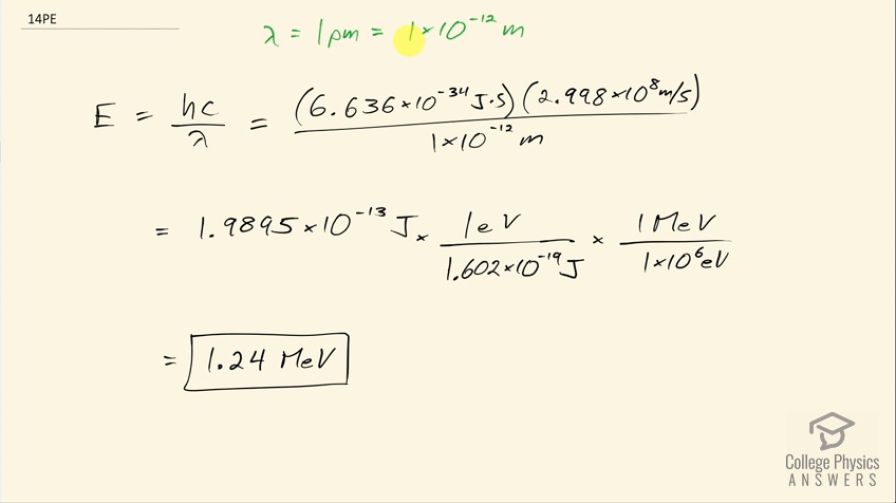 14PE
λ = 1pm = 1×10⁻¹² m
E = hc/λ = (6.636×10⁻³⁴ J·s)(2.998×10⁸ m/s) / 1×10⁻¹² m
= 1.9895×10⁻¹³ J × 1eV/1.602×10⁻¹⁹ J × 1 MeV/1×10⁶ eV
= 1.24 MeV
College Physics
ANSWERS